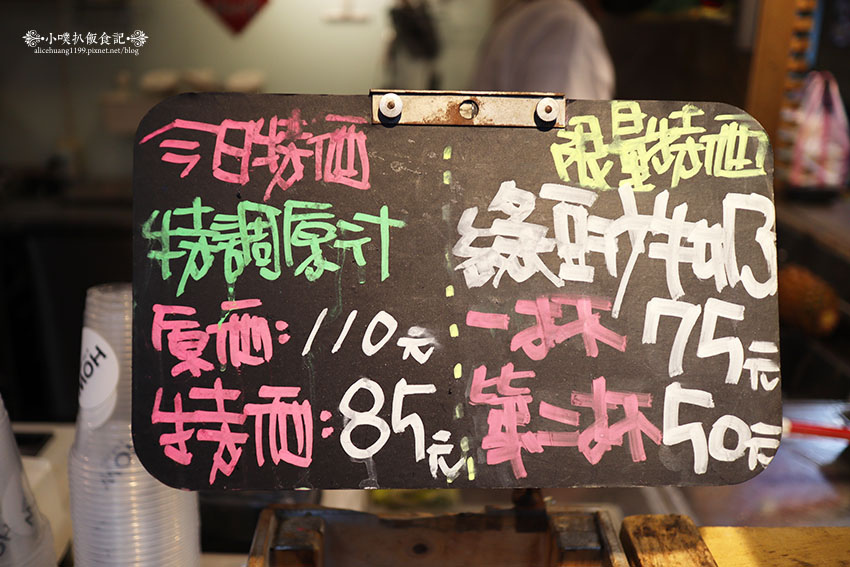 小噗扒飯食記
alicehuang1199.pixnet.net/blog
今日特価
特調原汁
原価:110元
特価:85元
限量特価
綠豆沙牛奶
一杯75元
第二杯50元
HOIM